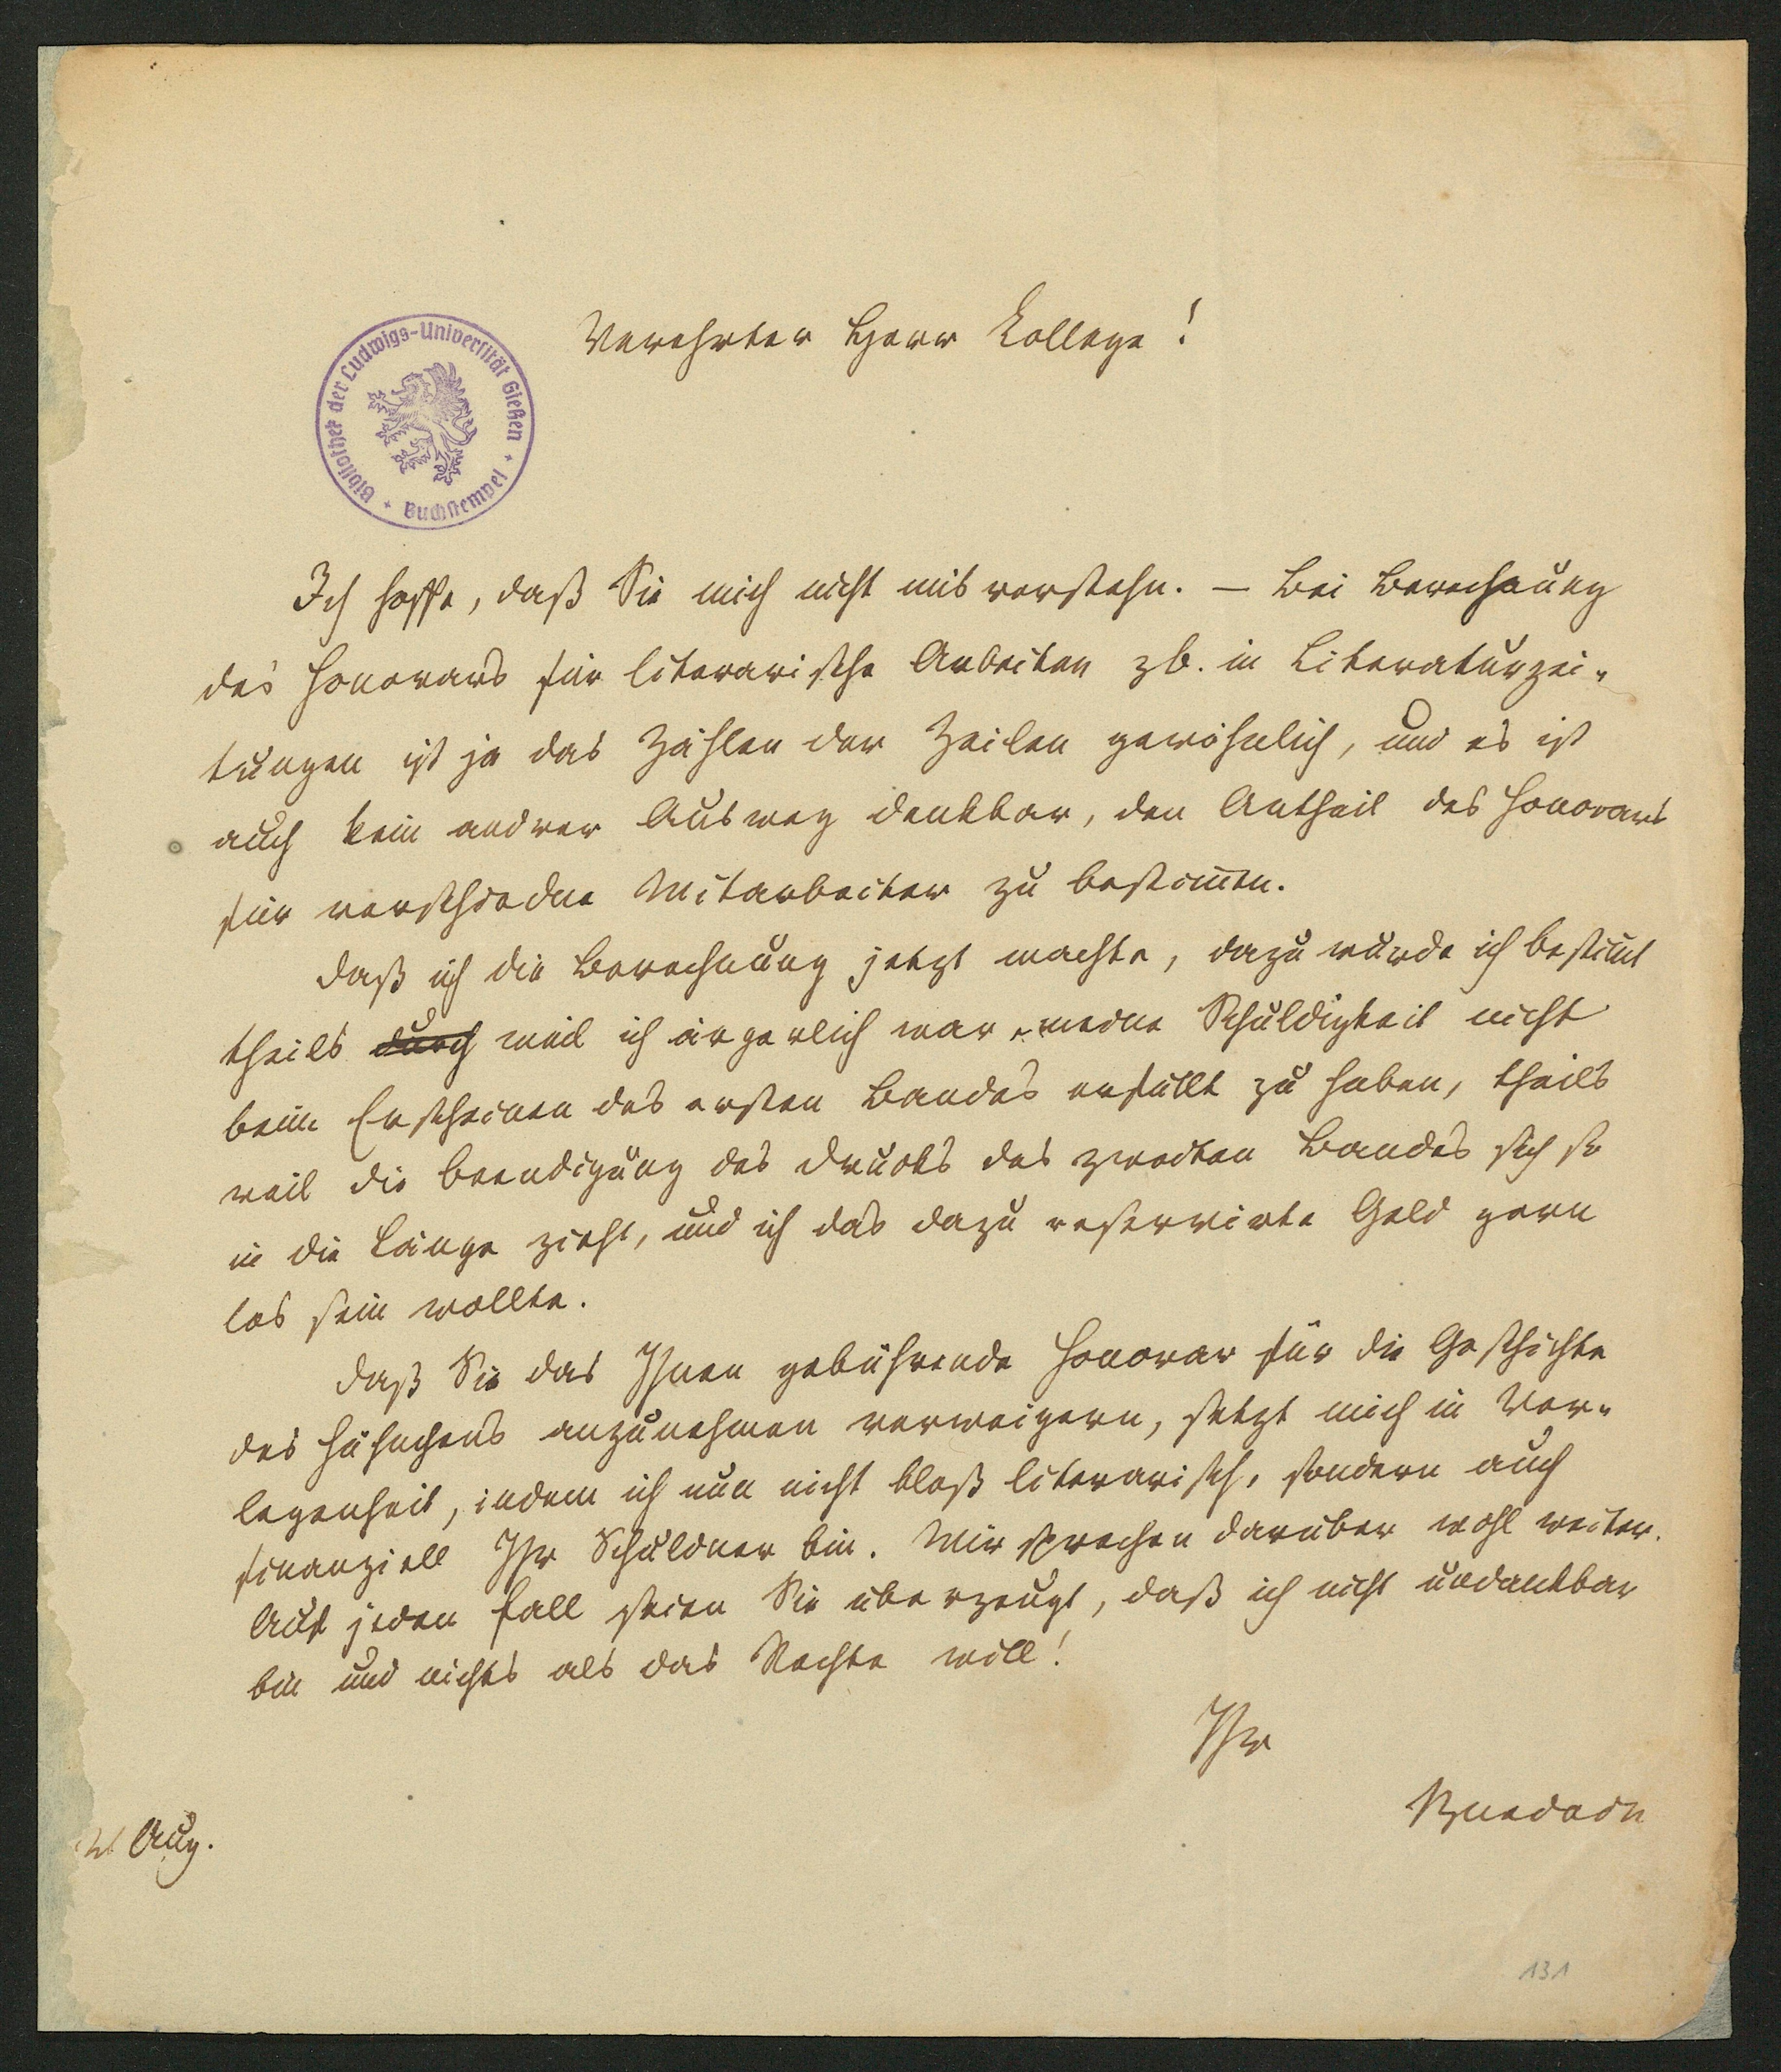 Verehrter Herr Kollege!
Bibliothek der Ludwigs-Universität Gießen
Buchstempel
Ich hoffe, daß Sie mich nicht misverstehn. — Bei Berechnung
des Honorars für literarische Arbeiten zb. in Literaturzei-
tungen ist ja das Zählen der Zeilen gewöhnlich, und es ist
auch kein andrer Ausweg denkbar, den Antheil des Honorars
für verschiedne Mitarbeiter zu bestimen.
Daß ich die Berechnung jetzt machte, dazu wurde ich bestimt
theils durch weil ich ärgerlich war, meine Schuldigkeit nicht
beim Erscheinen des ersten Bandes erfüllt zu haben, theils
weil die Beendigung des Drucks des zweiten Bandes sich so
in die Länge zieht, und ich das dazu reservirte Geld gern
los sein wollte.
Daß Sie das Ihnen gebührende Honorar für die Geschichte
des Hühnchens anzunehmen verweigern, setzt mich in Ver-
legenheit, indem ich nun nicht bloß literarisch, sondern auch
finanziell Ihr Schuldner bin. Wir sprechen darüber wohl weiter.
Auf jeden Fall seien Sie überzeugt, daß ich nicht undankbar
bin und nichts als das Rechte will!
Ihr
Burdach
Aug.
131